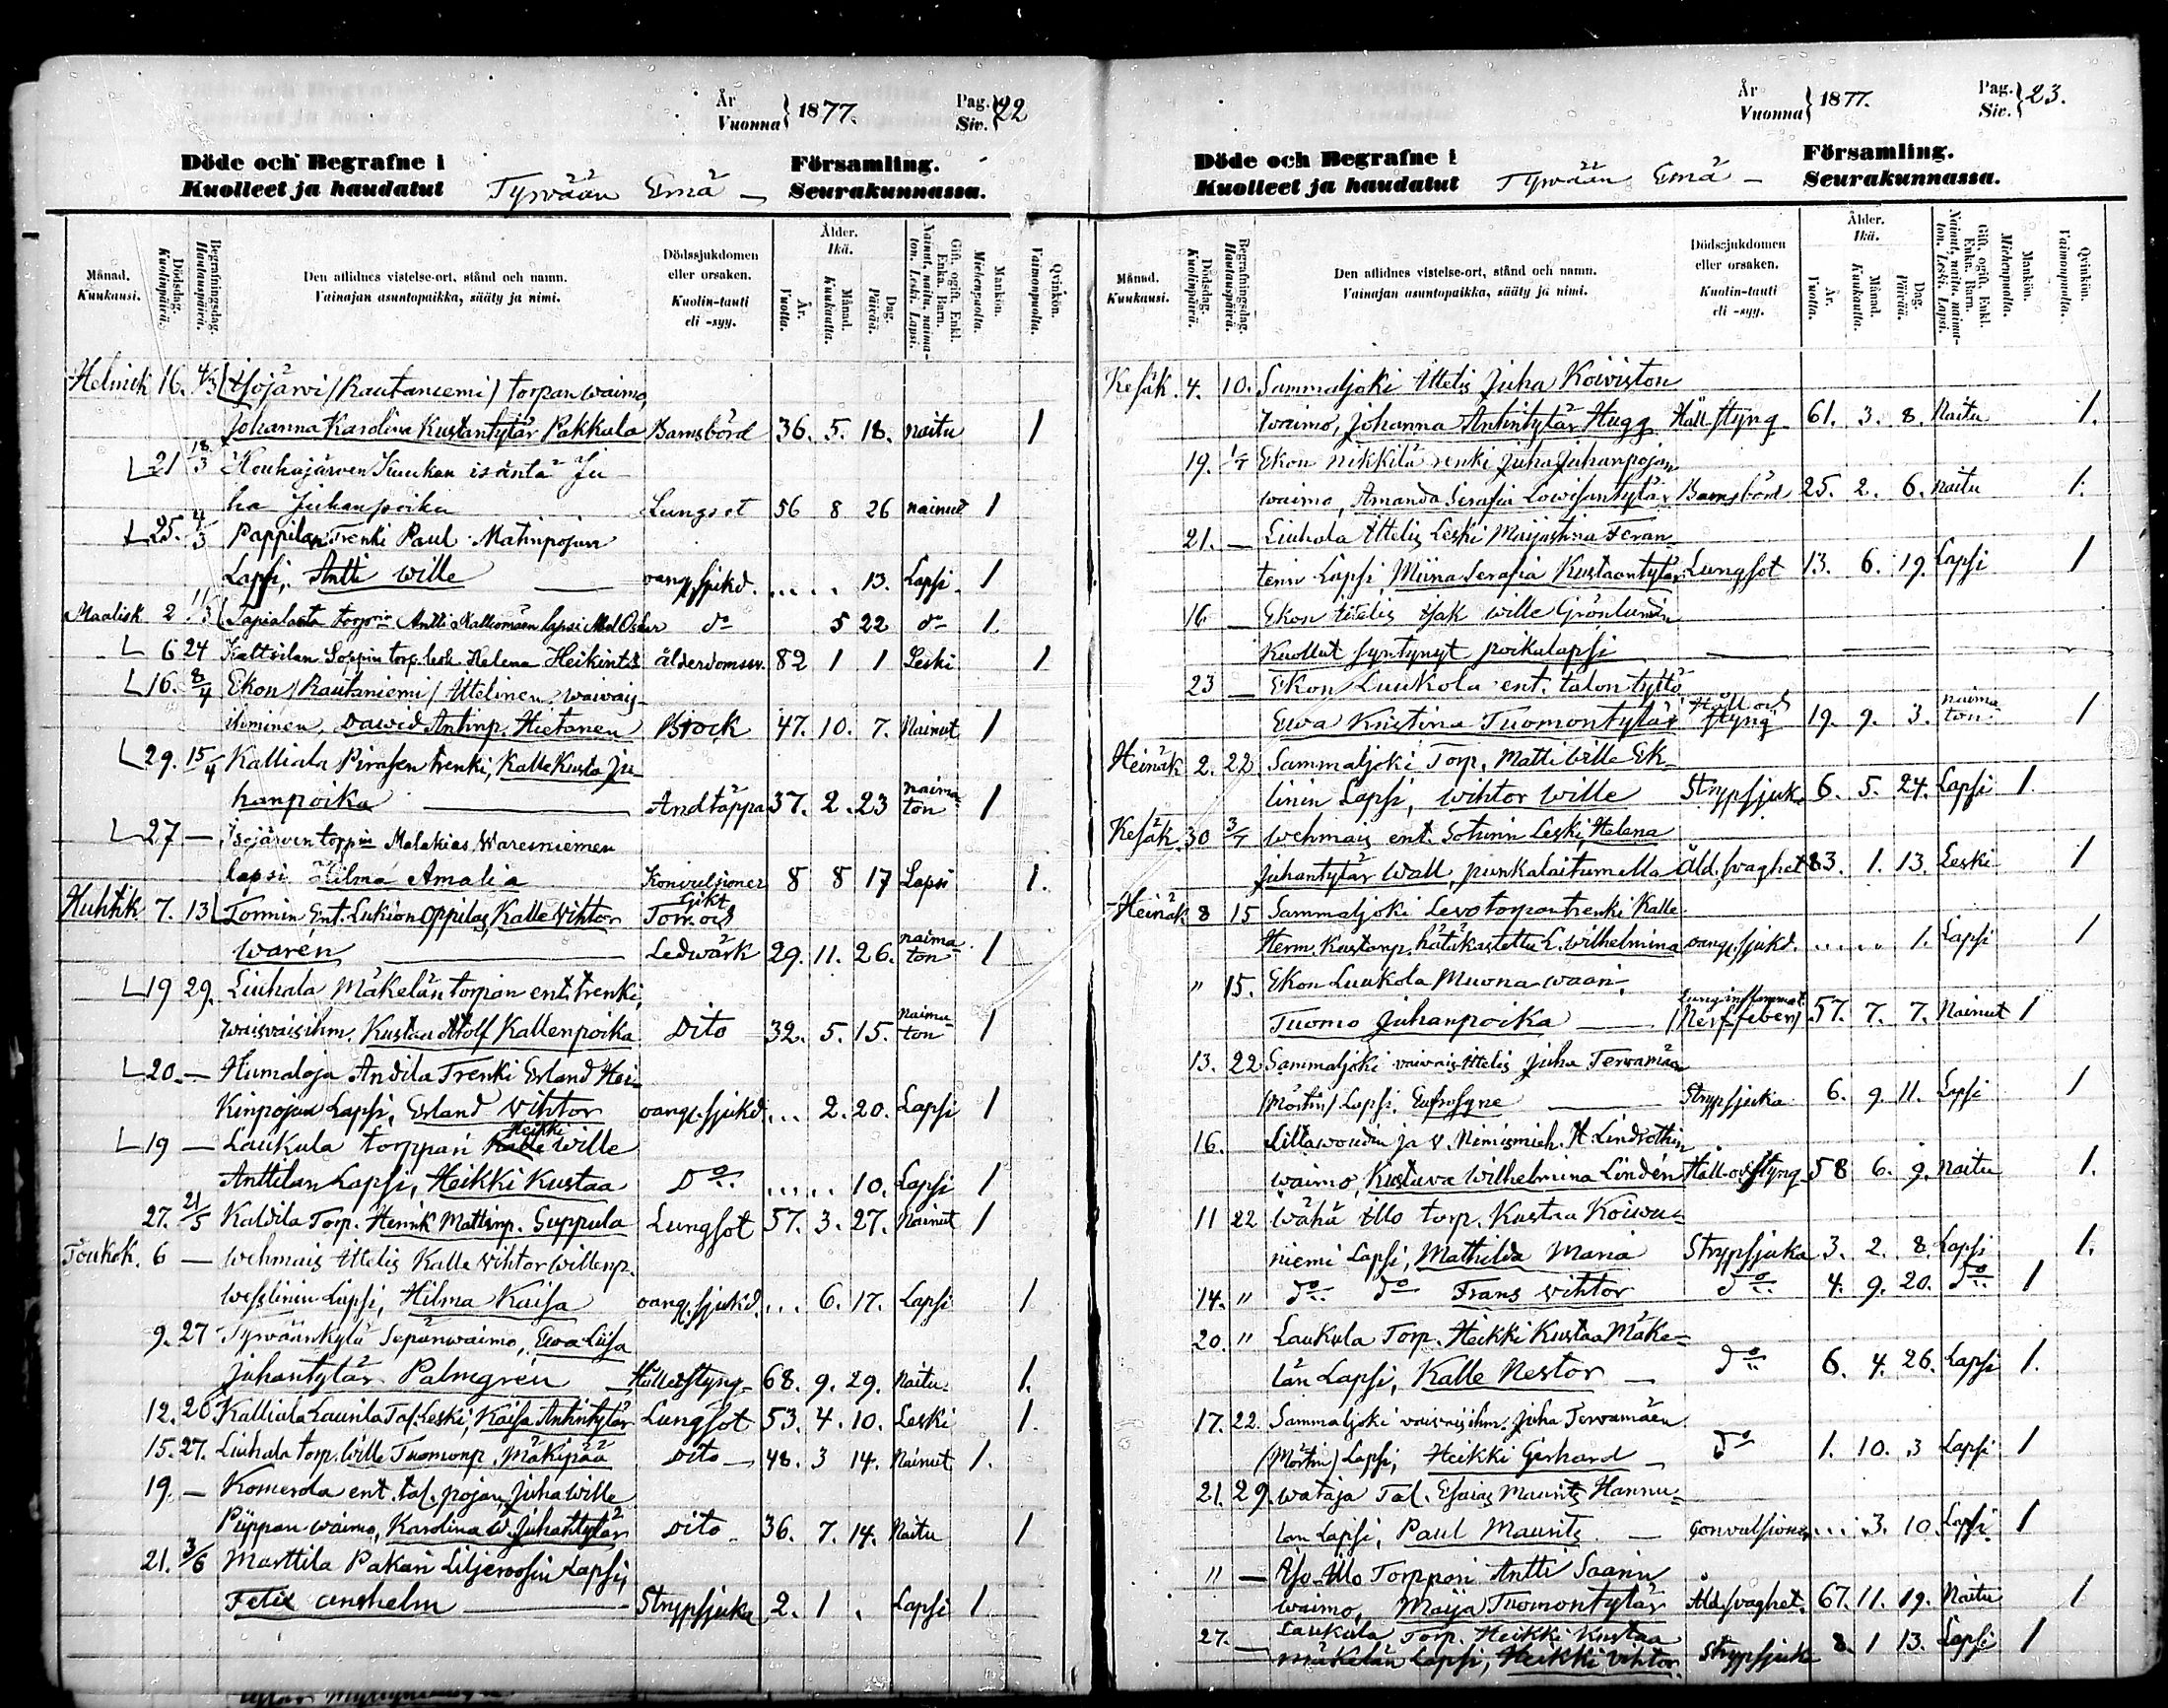 År Vuonna 1877. Pag. Siv. 22
Döde och Begrafne i Församling.
Kuolleet ja haudatut Tyrvään Emä Seurakunnassa.
Månad. Kuukausi. Dödsdag. Kuolinpäivä. Begrafningsdag. Hautauspäivä. Den aflidnes vistelse-ort, stånd och namn. Vainajan asuntopaikka, sääty ja nimi. Dödssjukdomen eller orsaken. Kuolin-tauti eli -syy. Ålder. Ikä. År. Vuotta. Månad. Kuukautta. Dag. Päivää. Gift, ogift, Enkl. Enka. Barn. Nainut, naitu, naimaton. Leski. Lapsi. Mankön. Miehenpuolta. Qvinkön. Vaimonpuolta.
Helmik 16. 4/3 Isojärwi /Rautaniemi/ torpan waimo,
Johanna Karolina Kustantytär Pakkala Barnsbörd 36. 5. 18. naitu 1
21 18/3 Houhajärven Kuukan isäntä Ju-
ha Juhanpoika Lungsot 56 8 26 nainut 1
25. 4/3 Pappilan Trenki Paul Matinpojan
Lapsi, Antti Wille oang. sjukd. .... 13. Lapsi. 1
Maalisk 2 11/3 Antti Kalliomäen lapsi do 5 22 do 1.
6 24 Kaltsilan Soppin torp. lesk. Helena Heikint. ålderdomssv. 82 1 1 Leski 1
16. 8/4 Ekon /Rautaniemi/ Ittelinen, waiwais-
ihminen, Dawid Antinp. Hietanen Bråck 47. 10. 7. Nainut 1
29. 15/4 Kalliala Pirasen trenki, Kalle Kusta Ju-
hanpoika Andtäppa 37. 2. 23 naimaton 1
27 — Isojärven torppan Malakias Waresniemen
lapsi Hilma Amalia Konvulsioner 8 8 17 Lapsi 1.
Huhtik. 7. 13 Tormin Ent. Lukion oppilas, Kalle Vihtor Torr. och Gikt
Waren Ledwärk 29. 11. 26. naimaton 1
19 29. Liuhala Mäkelän torpan ent. trenki,
waiwaisihm. Kustaa Adolf Kallenpoika Dito 32. 5. 15. naimaton 1
20. — Humaloja Andila Trenki Erland Hei-
kinpojan Lapsi, Erland Vihtor oang. sjukd. ... 2. 20. Lapsi 1
19 — Laukula torppari Heikki Wille
Anttilan Lapsi, Heikki Kustaa Do ..... 10. Lapsi 1
27. 21/5 Kaldila Torp. Henrik Mattinp. Seppula Lungsot 57. 3. 27. Nainut 1
Toukok. 6 — Wehmais Ittelis Kalle Vihtor Willenp.
Wesslinin Lapsi, Hilma Kaisa oang. sjukd. ... 6. 17. Lapsi 1
9. 27 Tyrväänkylä Sepänwaimo, Ewa Liisa
Juhantytär Palmgren Håll o. Styng 68. 9. 29. Naitu. 1.
12. 26 Kalliala Laurila Tal. Leski, Kaisa Antintytär Lungsot 53. 4. 10. Leski 1.
15. 27. Liuhala torp. Wille Tuomonp. Mäkipää Dito 48. 3 14. Nainut 1.
19. — Komerola ent. tal. pojan Juha Wille
Piippan waimo, Karolina W. Juhantytär Dito 36. 7. 14. Naitu 1
21. 3/6 Marttila Pakari Liljeroosin Lapsi,
Felix Anshelm Strypsjuka 2. 1 . Lapsi 1
År Vuonna 1877. Pag. Siv. 23.
Döde och Begrafne i Församling.
Kuolleet ja haudatut Tyrvään Emä Seurakunnassa.
Månad. Kuukausi. Dödsdag. Kuolinpäivä. Begrafningsdag. Hautauspäivä. Den aflidnes vistelse-ort, stånd och namn. Vainajan asuntopaikka, sääty ja nimi. Dödssjukdomen eller orsaken. Kuolin-tauti eli -syy. Ålder. Ikä. År. Vuotta. Månad. Kuukautta. Dag. Päivää. Gift, ogift, Enkl. Enka. Barn. Nainut, naitu, naimaton. Leski. Lapsi. Mankön. Miehenpuolta. Qvinkön. Vaimonpuolta.
Kesäk. 4. 10. Sammaljoki Ittelis Juha Koiviston
Waimo, Johanna Antintytär Hugg Håll styng 61. 3. 8. Naitu 1.
19. 1/7 Ekon Nikkilä renki Juha Juhanpojan
waimo, Amanda Serafia Lowisantytär Barnsbörd 25. 2. 6. naitu 1.
21. — Liuhala Ittelis Leski Maijastina Feran-
tenin Lapsi, Miina Serafia Kustaantytär Lungsot 13. 6. 19. Lapsi 1
16 — Ekon Ittelis Isak Wille Grönlundin
Kuollut syntynyt poikalapsi
23 — Ekon Luukola ent. talon tyttö
Ewa Kristina Tuomontytär Håll och styng 19. 9. 3. naimaton 1
Heinäk 2. 22 Sammaljoki Torp. Matti Wille Ek-
linin Lapsi, Wihtor Wille Strypsjuk. 6. 5. 24. Lapsi 1.
Kesäk. 30 3/7 Wehmais ent. Soturin Leski, Helena
Juhantytär Wall, punkalaitumella Åld. svaghet 83. 1. 13. Leski 1
Heinäk. 8 15 Sammaljoki Levo torpan trenki Kalle
Herm. Kustanp. hätäkastettu L. Wilhelmina oang. sjukd. ..... 1. Lapsi 1
" 15. Ekon Luukola Muona waari,
Tuomo Juhanpoika Lunginflammat. /Nerffeber/ 57. 7. 7. Nainut 1
13. 22 Sammaljoki vaivais Ittelis Juha Terwamäen
/Mörtin/ Lapsi, Eufrosyne Strypsjuka 6. 9. 11. Lapsi 1
16. Lillawoudin ja v. Nimismieh. A. Lindrothin
waimo, Kustava Wilhelmina Lindén Håll och styng 58 6. 9. Naitu 1.
11 22 Wähä Illo torp. Kustaa Koiwu-
niemi Lapsi, Mathilda Maria Strypsjuka 3. 2. 8. Lapsi 1.
14. " do do Frans Vihtor do 4. 9. 20. do 1
20. " Laukula Torp. Heikki Kustaa Mäke-
län Lapsi, Kalle Nestor do 6. 4. 26. Lapsi 1.
17. 22. Sammaljoki vaivaisihm. Juha Terwamäen
(Mörtin) Lapsi, Heikki Gerhard do 1. 10. 3 Lapsi 1
21. 29. Wataja Tal. Esaias Maurits Hannu-
lan Lapsi, Paul Maurits Convulsioner ... 3. 10 Lapsi 1
" — Iso-Illo Torppari Antti Saarin
waimo, Maija Tuomontytär Åld. svaghet. 67. 11. 19. Naitu 1
27. — Laukula Torp. Heikki Kustaa
Mäkelän Lapsi, Heikki Vihtor. Strypsjuka 8. 1 13. Lapsi 1